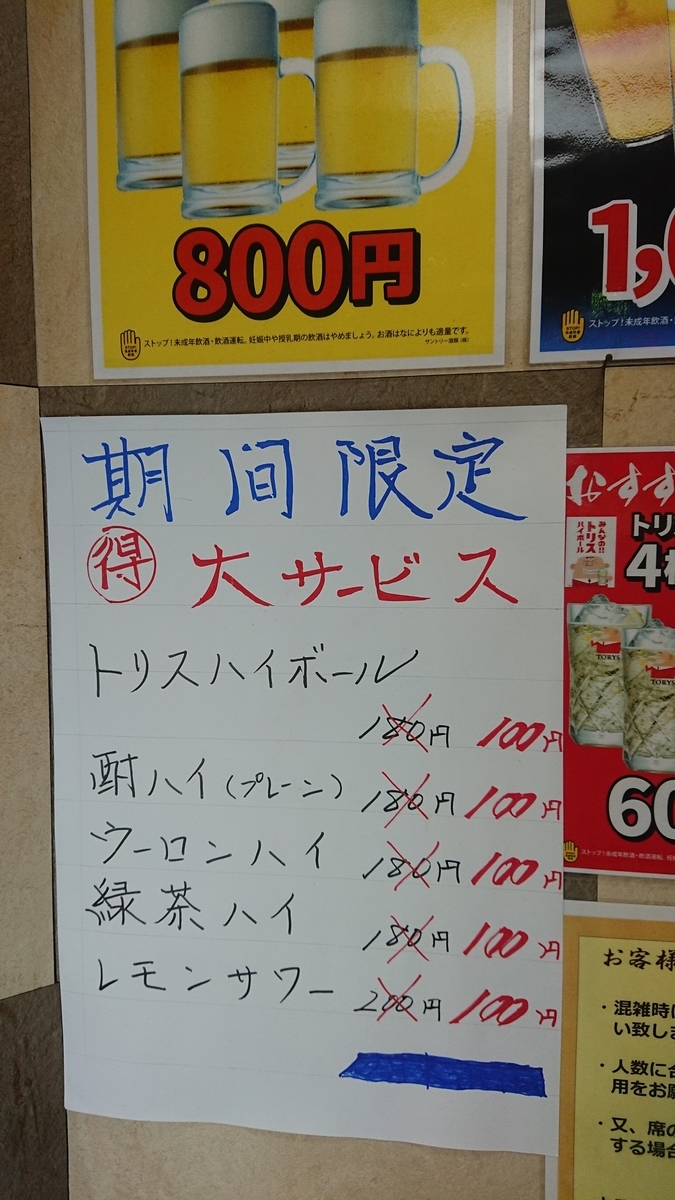 800円
STOP!
ストップ!未成年飲酒・飲酒運転。妊娠中や授乳期の飲酒はやめましょう。お酒はなによりも適量です。
サントリー酒類(株)
1,
STOP!
ストップ!未成年飲酒・
期間限定
得 大サービス
トリスハイボール
180円 100円
酎ハイ(プレーン) 180円 100円
ウーロンハイ 180円 100円
緑茶ハイ 180円 100円
レモンサワー 200円 100円
おすす
みんなの!!
トリス
ハイボール
トリ
4
TORYS
TORYS
60
ストップ!未成年飲酒・飲酒運転。
お客様
・混雑時
い致しま
・人数に
用をお願
・又、席の
する場合